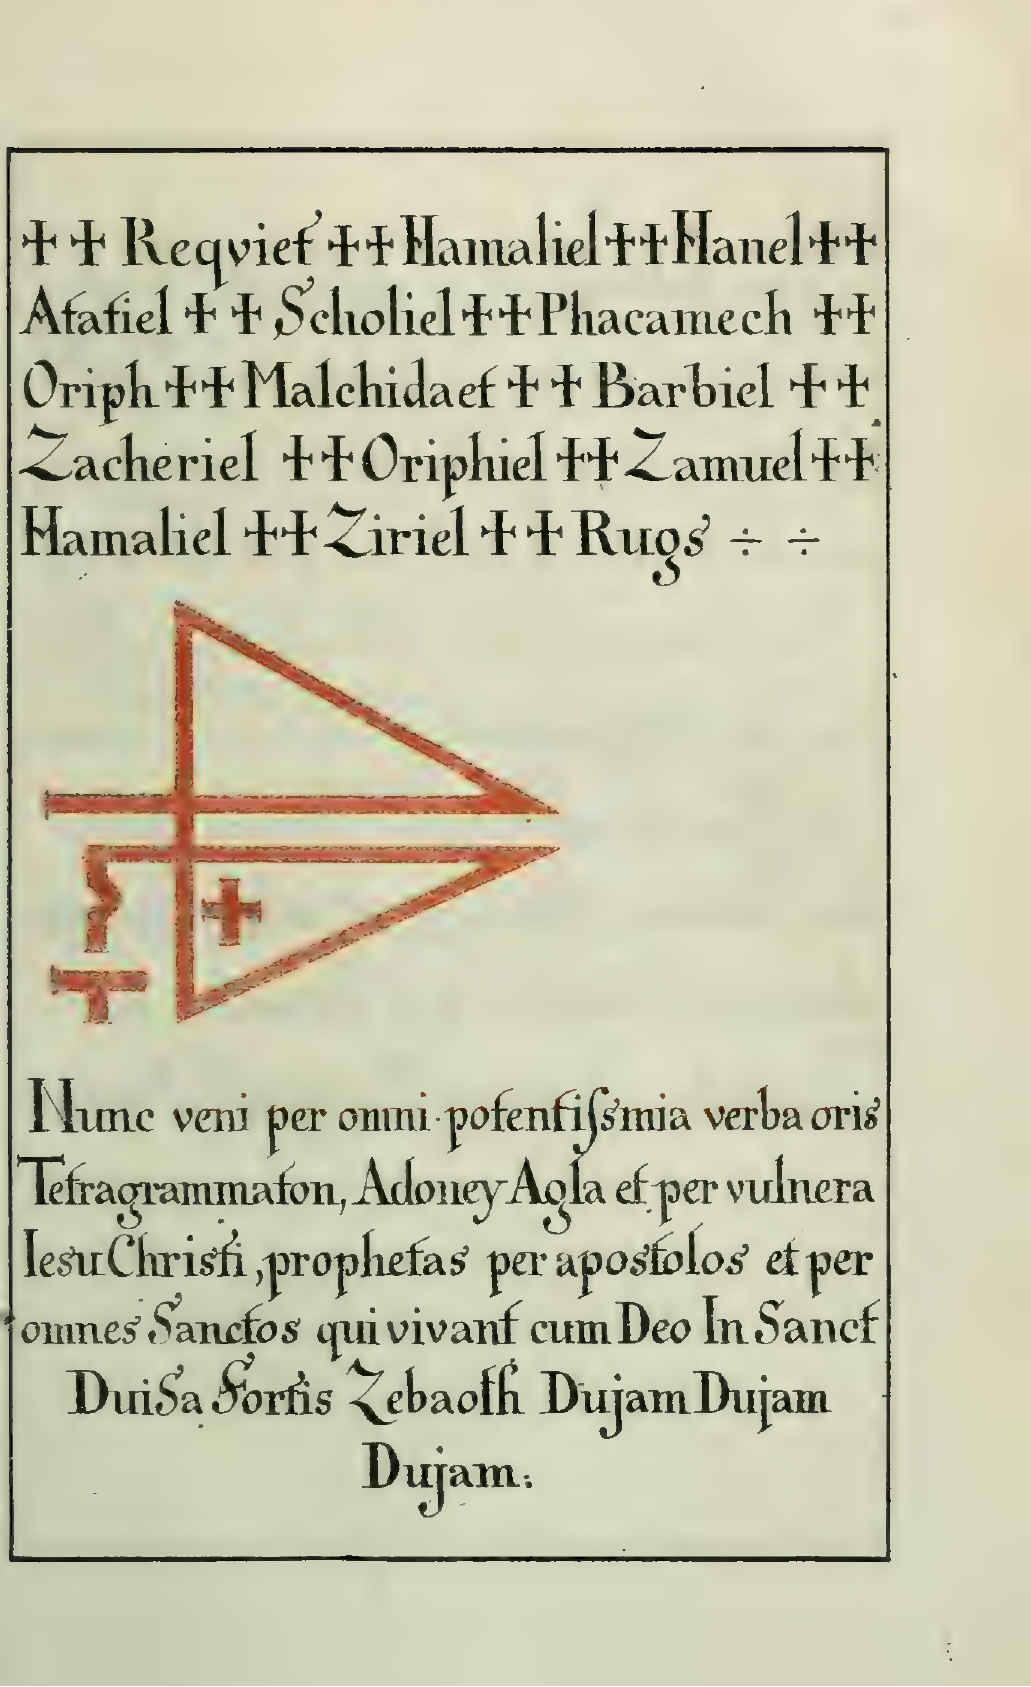 ✝ ✝ Reqviet ✝ ✝ Hamaliel ✝ ✝ Hanel ✝ ✝
Atatiel ✝ ✝ Scholiel ✝ ✝ Phacamech ✝ ✝
Oriph ✝ ✝ Malchidaet ✝ ✝ Barbiel ✝ ✝
Zacheriel ✝ ✝ Oriphiel ✝ ✝ Zamuel ✝ ✝
Hamaliel ✝ ✝ Ziriel ✝ ✝ Rugs ÷ ÷
Nunc veni per omni potentiſsmia verba oris
Tetragrammaton, Adoney Agla et per vulnera
Iesu Christi, prophetas per apostolos et per
omnes Sanctos qui vivant cum Deo In Sanct
Dui Sa Fortis Zebaoth Dujam Dujam
Dujam.